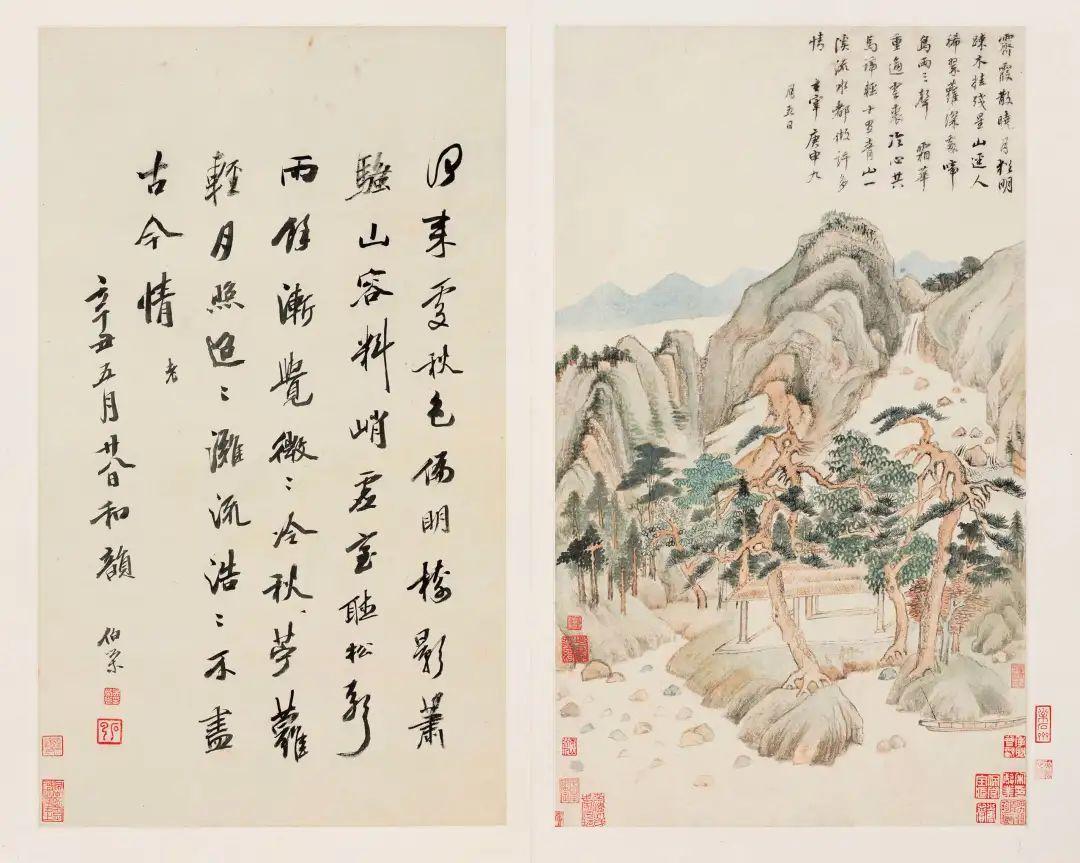 霽霞散曉月猶明
疎木挂殘星山逕人
稀翠蘿深處啼
鳥兩三聲 霜華
重逼雲裘冷心共
馬蹄輕十里青山一
溪流水都做許多
情 玄宰 庚申九
月五日
来處秋色明影蕭
騷山容料峭虛室聽松聲
雨餘漸覺微〻冷秋蘿
輕月照迢〻灘流浩〻不盡
古今情
辛丑五月廿八日和韻 伯榮